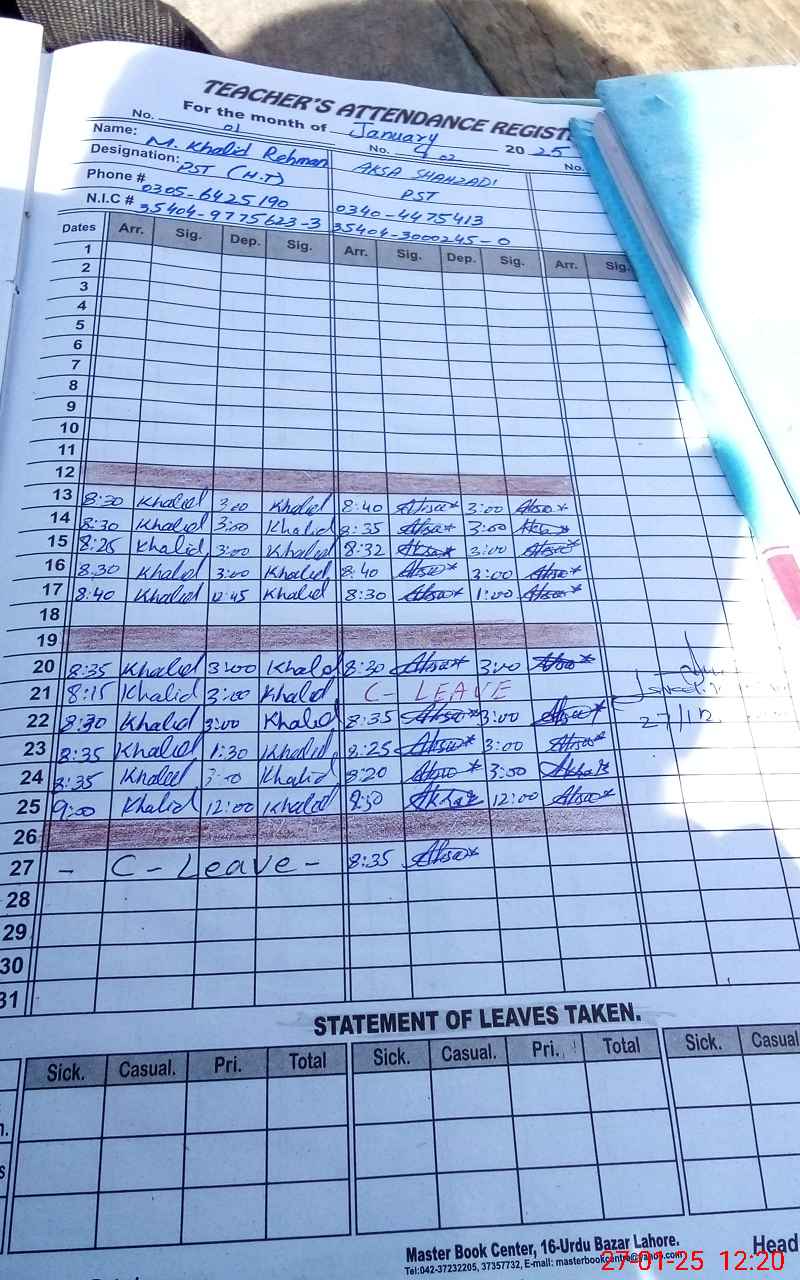 TEACHER'S ATTENDANCE REGIST
For the month of January 2025
No. 01 No. 02 No.
Name: M. Khalid Rehman AKSA SHAHZADI
Designation: PST (H.T) PST
Phone # 0305-6425190 0340-4475413
N.I.C # 35404-9775623-3 35404-3000245-0
Dates Arr. Sig. Dep. Sig. Arr. Sig. Dep. Sig. Arr. Sig.
1
2
3
4
5
6
7
8
9
10
11
12
13 8:30 Khalid 3:00 Khalid 8:40 3:00
14 8:30 Khalid 3:00 Khalid 8:35 3:00
15 8:25 Khalid 3:00 Khalid 8:32 3:00
16 8:30 Khalid 3:00 Khalid 8:40 3:00
17 8:40 Khalid 12:45 Khalid 8:30 1:00
18
19
20 8:35 Khalid 3:00 Khalid 8:30 3:00
21 8:15 Khalid 3:00 Khalid C - LEAVE
22 8:30 Khalid 3:00 Khalid 8:35 3:00
23 8:35 Khalid 1:30 Khalid 8:25 3:00
24 8:35 Khalid 3:00 Khalid 8:20 3:00
25 9:00 Khalid 12:00 Khalid 8:30 12:00
26
27 - C - Leave - 8:35
28
29
30
31
STATEMENT OF LEAVES TAKEN.
Sick. Casual. Pri. Total Sick. Casual. Pri. Total Sick. Casual
Master Book Center, 16-Urdu Bazar Lahore. Head
Tel:042-37232205, 37357732, E-mail: masterbookcentre@yahoo.com
27-01-25 12:20